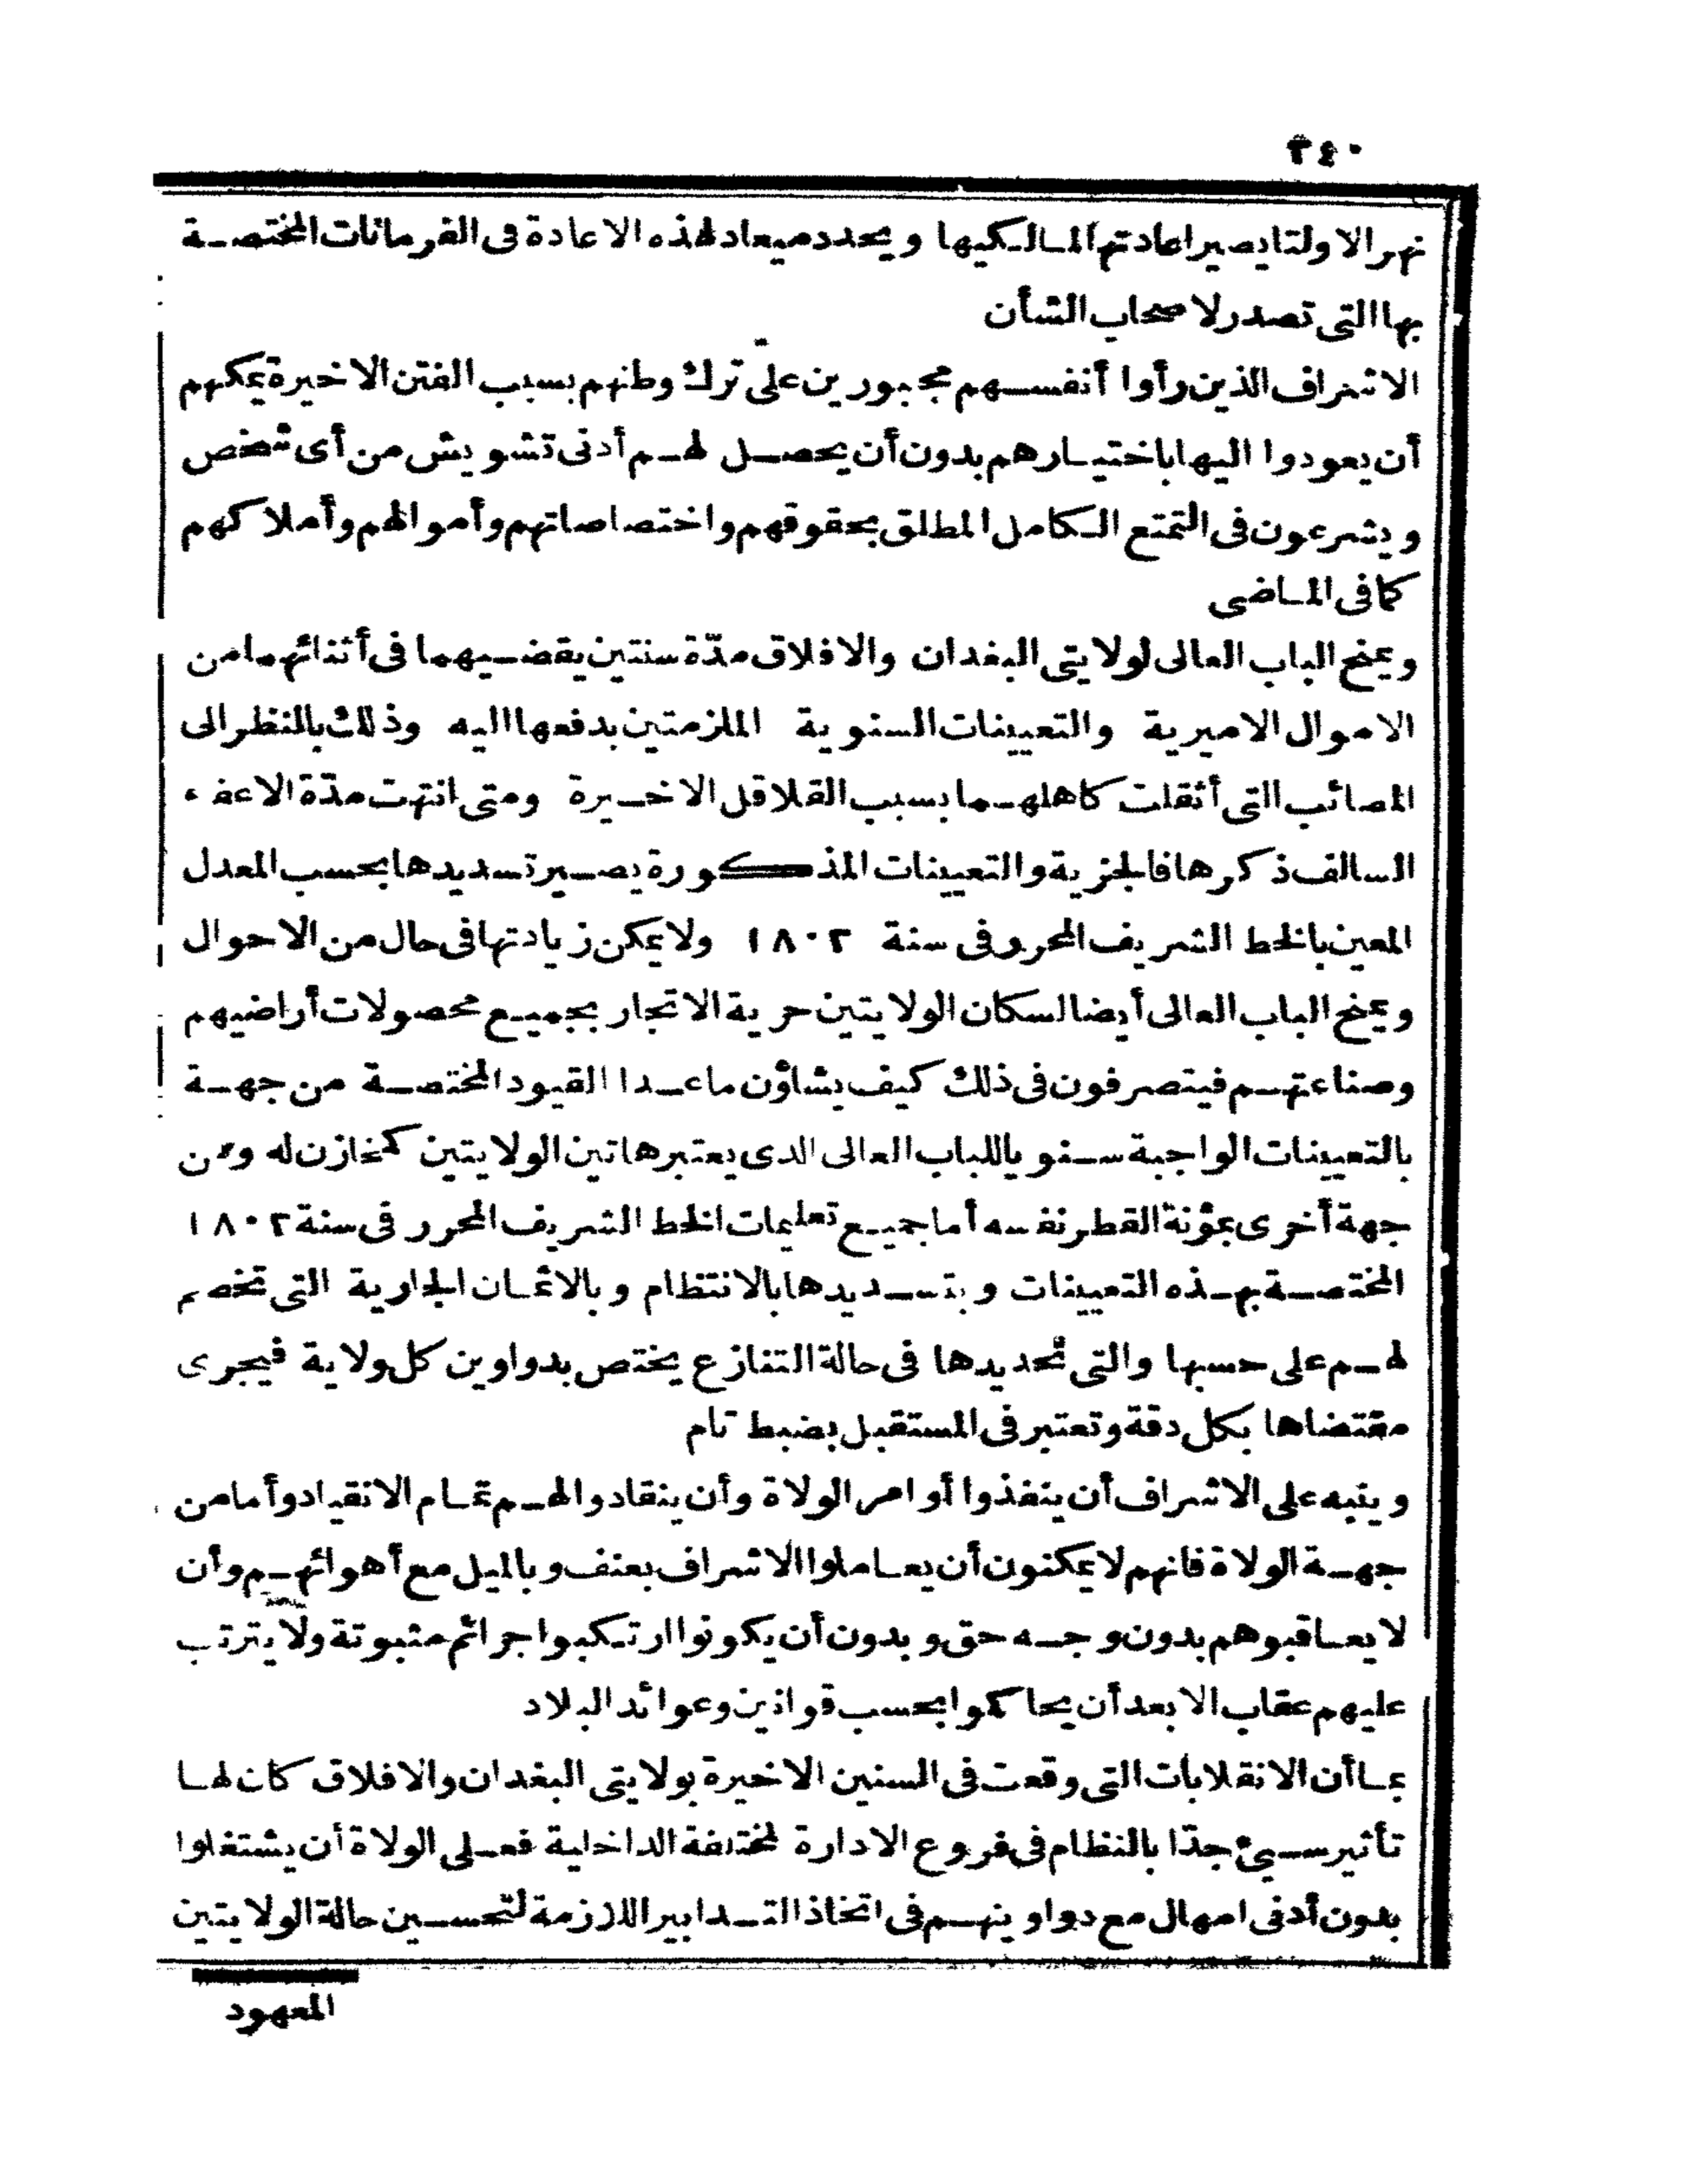 ٣٤٠
نهر الاولتا يصير اعادتها لمالكيها ويحدد ميعاد لهذه الاعادة فى الفرمانات المختصة
بها التى تصدر لاصحاب الشأن
الاشراف الذين رأوا أنفسهم مجبورين على ترك وطنهم بسبب الفتن الاخيرة يمكنهم
أن يعودوا اليها باختيارهم بدون أن يحصل لهم أدنى تشويش من أى شخص
ويشرعون فى التمتع الكامل المطلق بحقوقهم واختصاصاتهم وأموالهم وأملاكهم
كما فى الماضى
ويمنح الباب العالى لولايتى البغدان والافلاق مدّة سنتين يقضيهما فى أثنائهما من
الاموال الاميرية والتعيينات السنوية الملزمتين بدفعها اليه وذلك بالنظر الى
المصائب التى أثقلت كاهلهما بسبب القلاقل الاخيرة ومتى انتهت مدّة الاعفاء
السالف ذكرها فالجزية والتعيينات المذكورة يصير تسديدها بحسب المعدل
المعين بالخط الشريف المحرر فى سنة ١٨٠٢ ولا يمكن زيادتها فى حال من الاحوال
ويمنح الباب العالى أيضا لسكان الولايتين حرية الاتجار بجميع محصولات أراضيهم
وصناعتهم فيتصرفون فى ذلك كيف يشاؤن ماعدا القيود المختصة من جهة
بالتعيينات الواجبة سنويا للباب العالى الذى يعتبر هاتين الولايتين كمخازن له ومن
جهة أخرى بمؤنة القطر نفسه أما جميع تعليمات الخط الشريف المحرر فى سنة ١٨٠٢
المختصة بهذه التعيينات وبتسديدها بالانتظام وبالاثمان الجارية التى تخصم
لهم على حسبها والتى تحديدها فى حالة التنازع يختص بدواوين كل ولاية فيجرى
مقتضاها بكل دقة وتعتبر فى المستقبل بضبط تام
وينبه على الاشراف أن ينفذوا أوامر الولاة وأن ينقادوا لهم تمام الانقياد وأما من
جهة الولاة فانهم لا يمكنون أن يعاملوا الاشراف بعنف وبالميل مع أهوائهم وأن
لا يعاقبوهم بدون وجه حق وبدون أن يكونوا ارتكبوا جرائم مثبوتة ولا يترتب
عليهم عقاب الا بعد أن يحاكموا بحسب قوانين وعوائد البلاد
بما أن الانقلابات التى وقعت فى السنين الاخيرة بولايتى البغدان والافلاق كان لها
تأثير سيئ جدّا بالنظام فى فروع الادارة المختلفة الداخلية فعلى الولاة أن يشتغلوا
بدون أدنى امهال مع دواوينهم فى اتخاذ التدابير اللازمة لتحسين حالة الولايتين
المعهود